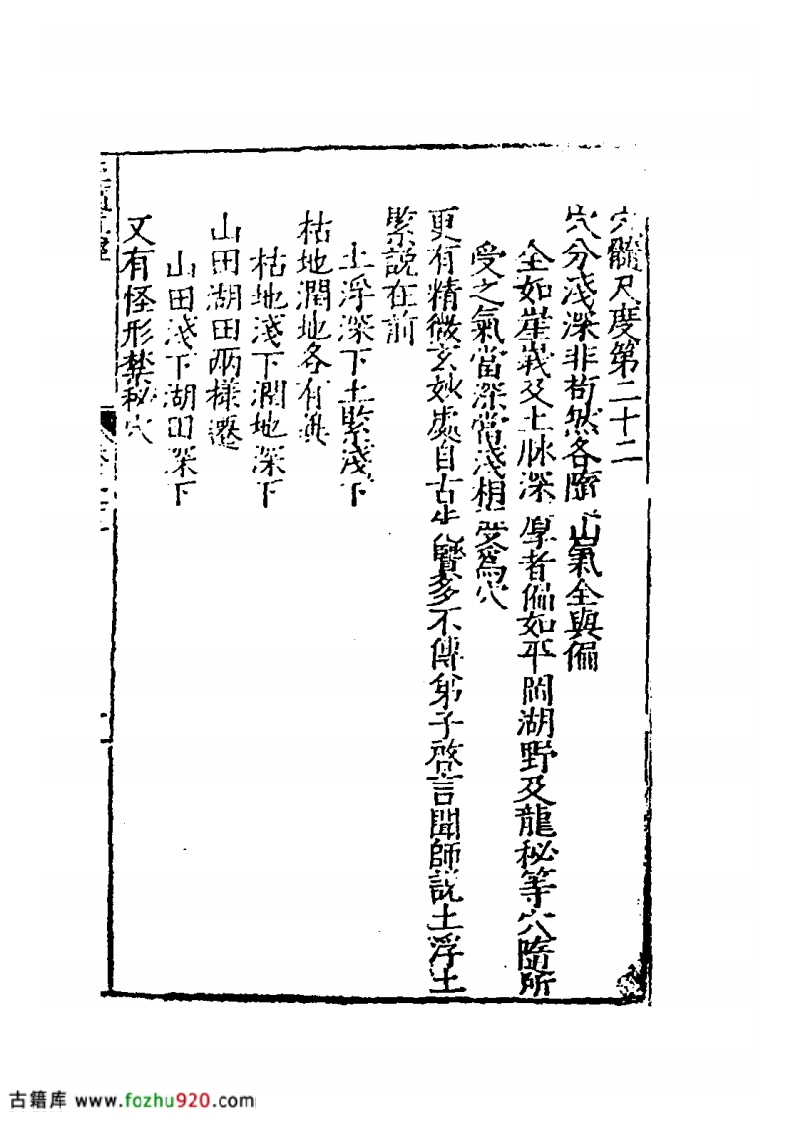 穴髓尺度第二十二
穴分淺深非苟然各隨山氣全與偏
全如崖峩及土脉深厚者偏如平岡湖野及龍秘等穴隨所
受之氣當深當淺相受為穴
更有精微玄妙處自古先賢多不傳弟子啓言聞師說土浮土
緊說在前
土浮深下土緊淺下
枯地潤地各有無
枯地淺下潤地深下
山田湖田兩樣遷
山田淺下湖田深下
又有怪形禁秘穴
古籍库 www.fozhu920.com